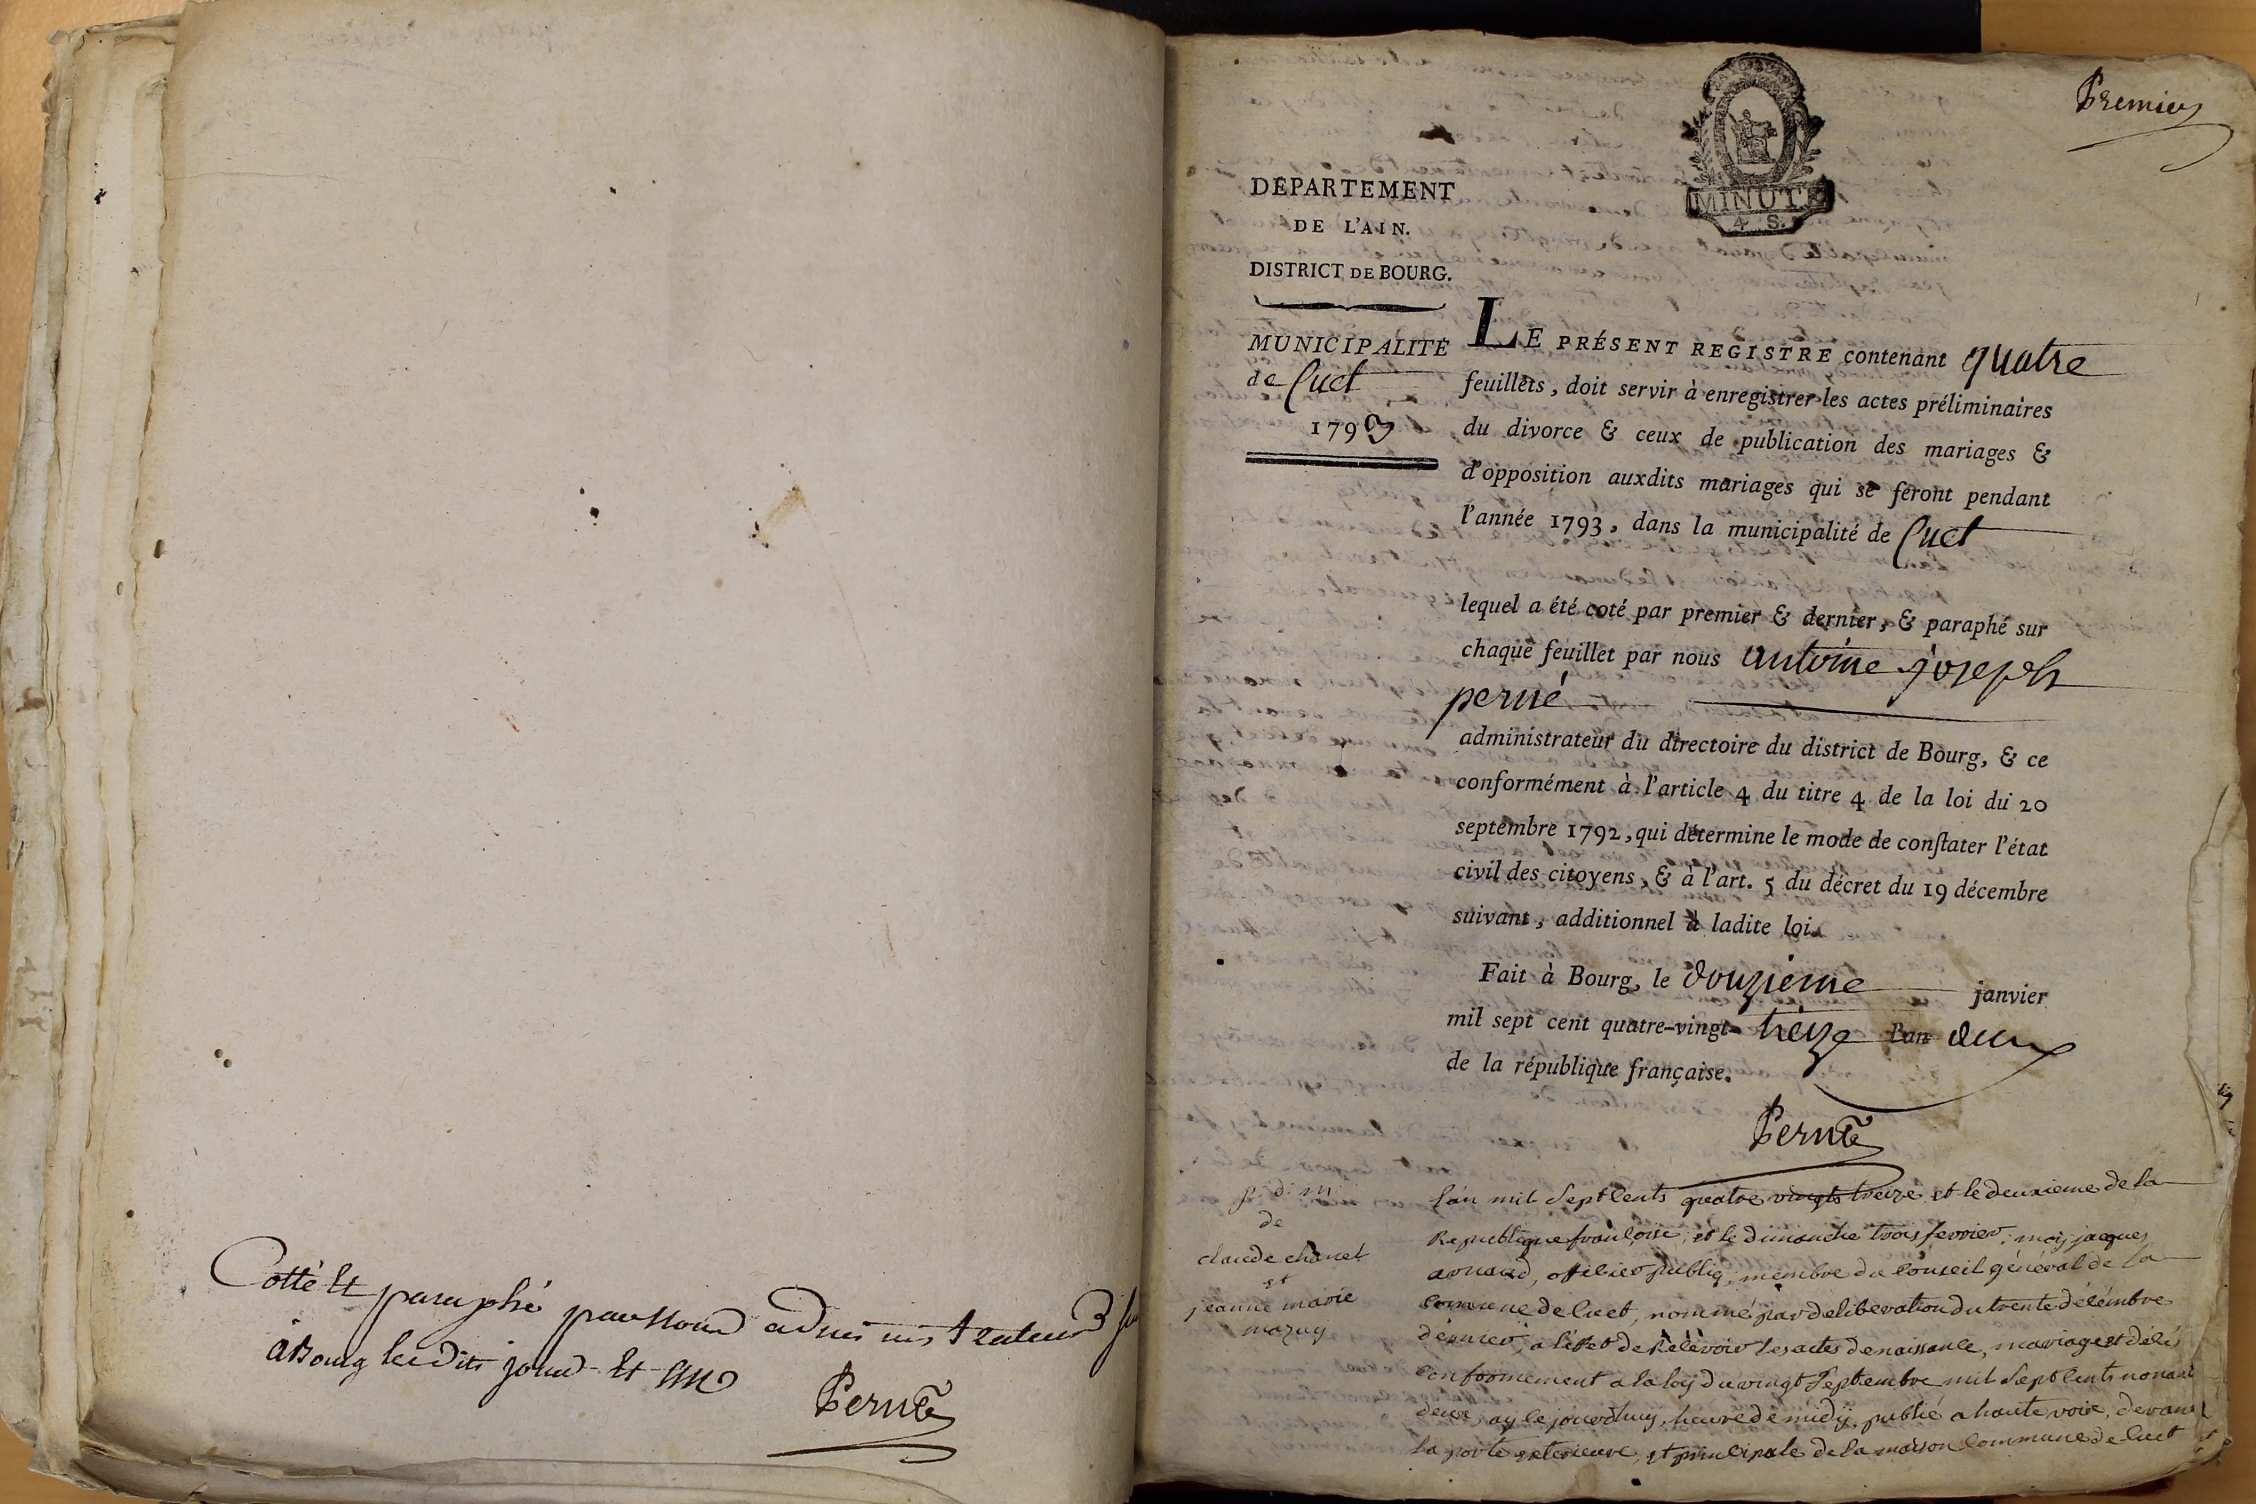 Cotté Et paraphé par Nous administrateur
à Bourg lesdits jour Et an
Perné
Premier
MINUTE
4 S.
DÉPARTEMENT
DE L'AIN.
DISTRICT DE BOURG.
MUNICIPALITÉ
de Cuet
1793
LE PRÉSENT REGISTRE contenant quatre
feuillets, doit servir à enregistrer les actes préliminaires
du divorce & ceux de publication des mariages &
d'opposition auxdits mariages qui se feront pendant
l'année 1793, dans la municipalité de Cuet
lequel a été coté par premier & dernier, & paraphé sur
chaque feuillet par nous antoine joseph
perné
administrateur du directoire du district de Bourg, & ce
conformément à l'article 4 du titre 4 de la loi du 20
septembre 1792, qui détermine le mode de conſtater l'état
civil des citoyens, & à l'art. 5 du décret du 19 décembre
suivant, additionnel à ladite loi.
Fait à Bourg, le douzieme janvier
mil sept cent quatre-vingt- treize l'an deux
de la république française.
Perné
p. d. m.
de
claude chanel
et
jeanne marie
mazuy
l'an mil Sept Cents quatre vingts treize et le deuxieme de la
Republique françoise, et le dimanche trois fevrier, moy jacques
, officier publiq, membre du Conseil général de la
Commune de Cuet, nommé par deliberation du trente décémbre
dérnier, a l'éffet de Récévoir les actes de naissance, mariage et décés
Conformement a la loy du vingt Septembre mil Sept Cents nonante
deux, ay le jourd'huy, heure de midy, publié a haute voix, devant
la porte exterieure, et principale de la maison Commune de Cuet